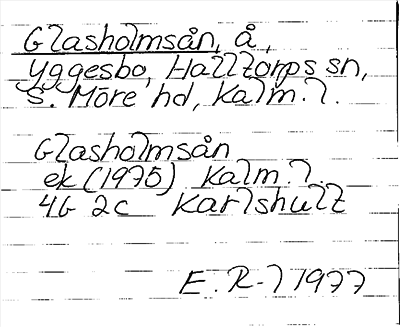 Glasholmsån, å,
Yggesbo, Halltorps sn,
S. Möre hd, Kalm. l.
Glasholmsån
ek (1975) Kalm. l.
4G 2c Karlshult
E. R-l 1977